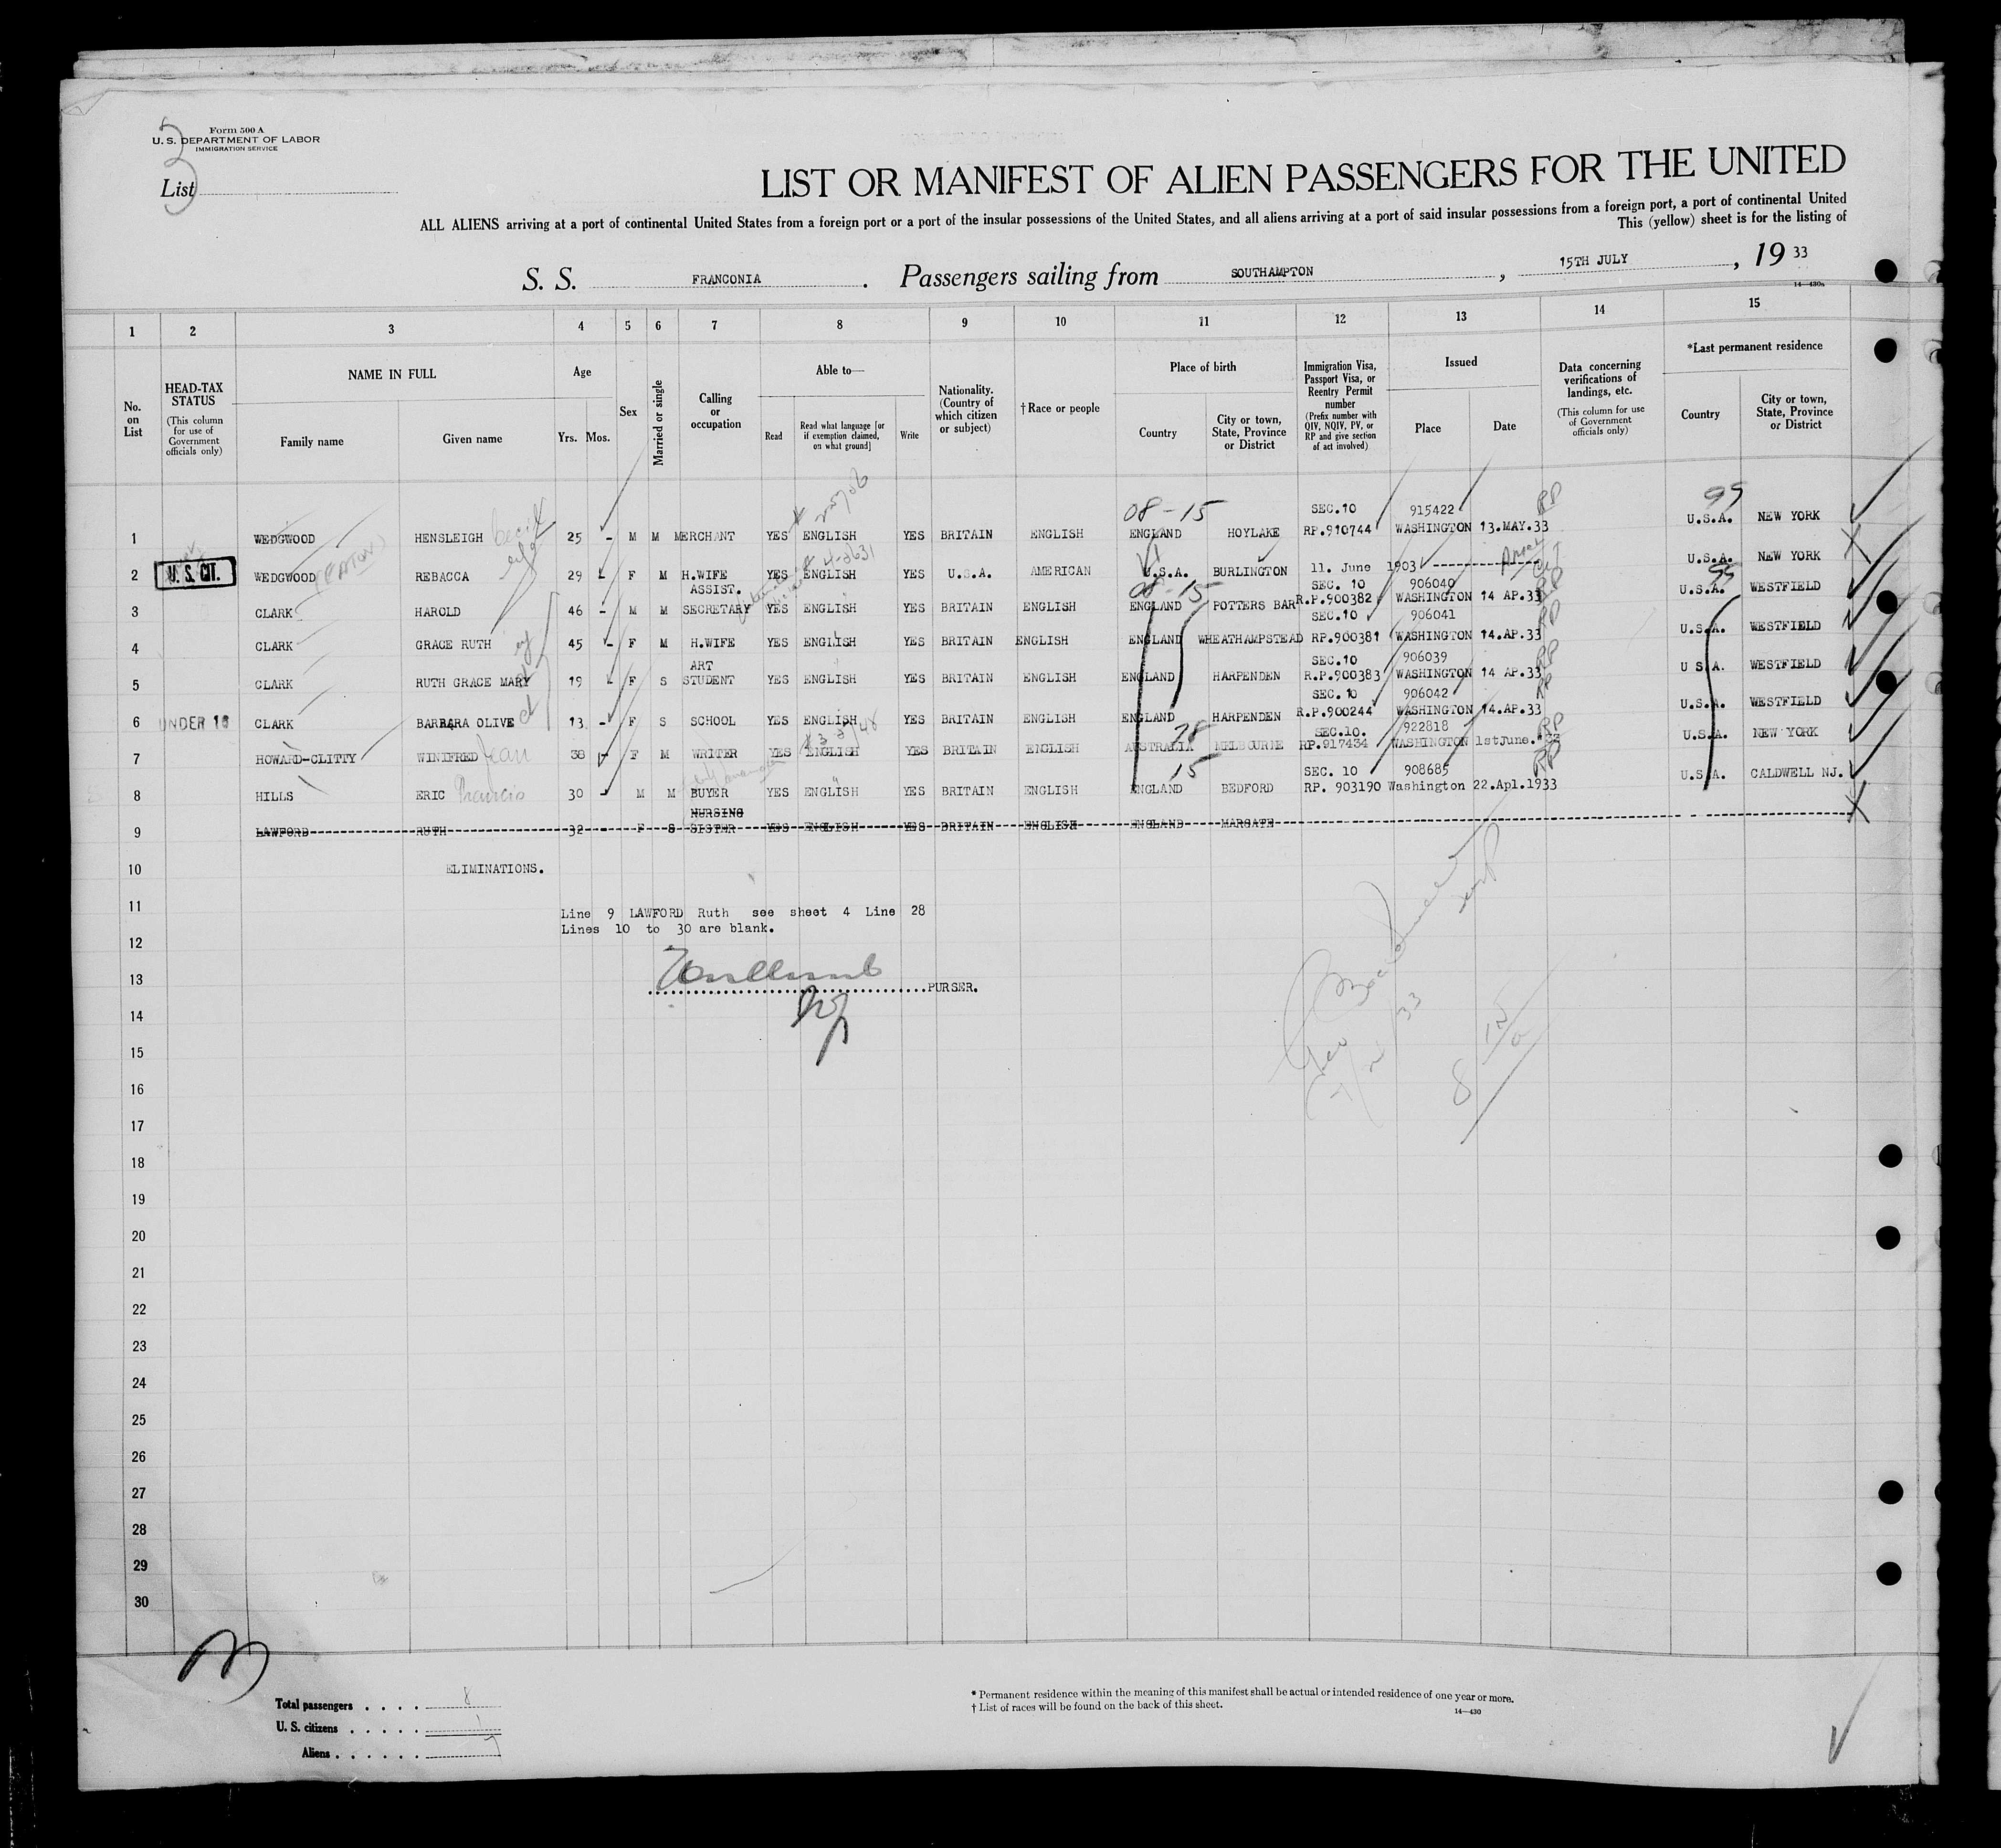 Form 500 A
U. S. DEPARTMENT OF LABOR
IMMIGRATION SERVICE
List 3
LIST OR MANIFEST OF ALIEN PASSENGERS FOR THE UNITED
ALL ALIENS arriving at a port of continental United States from a foreign port or a port of the insular possessions of the United States, and all aliens arriving at a port of said insular possessions from a foreign port, a port of continental United
This (yellow) sheet is for the listing of
S. S. FRANCONIA . Passengers sailing from SOUTHAMPTON , 15TH JULY , 19 33
14—430a
1 2 3 4 5 6 7 8 9 10 11 12 13 14 15
No. on List
HEAD-TAX STATUS (This column for use of Government officials only)
NAME IN FULL
Family name Given name
Age
Yrs. Mos.
Sex
Married or single
Calling or occupation
Able to—
Read Read what language [or if exemption claimed, on what ground] Write
Nationality. (Country of which citizen or subject)
† Race or people
Place of birth
Country City or town, State, Province or District
Immigration Visa, Passport Visa, or Reentry Permit number (Prefix number with QIV, NQIV, PV, or RP and give section of act involved)
Issued
Place Date
Data concerning verifications of landings, etc. (This column for use of Government officials only)
*Last permanent residence
Country City or town, State, Province or District
08-15 SEC.10 915422 RP 99
1 WEDGWOOD HENSLEIGH Cecil 25 - M M MERCHANT YES ENGLISH YES BRITAIN ENGLISH ENGLAND HOYLAKE RP.910744 WASHINGTON 13.MAY.33 U.S.A. NEW YORK
2 U. S. CIT. WEDGWOOD (EATON) REBACCA 29 - F M H.WIFE YES ENGLISH YES U.S.A. AMERICAN U.S.A. BURLINGTON 11. June 1903 U.S.A. NEW YORK
ASSIST. 08-15 SEC. 10 906040 RP 99
3 CLARK HAROLD 46 - M M SECRETARY YES ENGLISH YES BRITAIN ENGLISH ENGLAND POTTERS BAR R.P.900382 WASHINGTON 14 AP.33 U.S.A. WESTFIELD
SEC.10 906041 RP
4 CLARK GRACE RUTH 45 - F M H.WIFE YES ENGLISH YES BRITAIN ENGLISH ENGLAND WHEATHAMPSTEAD RP.900381 WASHINGTON 14.AP.33 U.S.A. WESTFIELD
ART SEC.10 906039 RP
5 CLARK RUTH GRACE MARY 19 - F S STUDENT YES ENGLISH YES BRITAIN ENGLISH ENGLAND HARPENDEN R.P.900383 WASHINGTON 14 AP.33 U S.A. WESTFIELD
SEC. 10 906042 RP
6 UNDER 16 CLARK BARBARA OLIVE 13 - F S SCHOOL YES ENGLISH YES BRITAIN ENGLISH ENGLAND HARPENDEN R.P.900244 WASHINGTON 14.AP.33 U.S.A. WESTFIELD
28 SEC.10. 922818 RP
7 HOWARD-CLITTY WINIFRED Jean 38 - F M WRITER YES ENGLISH YES BRITAIN ENGLISH AUSTRALIA MELBOURNE RP.917434 WASHINGTON 1stJune.'33 U.S.A. NEW YORK
15 SEC. 10 908685 RP
8 HILLS ERIC Francis 30 - M M BUYER YES ENGLISH YES BRITAIN ENGLISH ENGLAND BEDFORD RP. 903190 Washington 22.Apl.1933 U.S.A. CALDWELL NJ.
NURSING
9 LAWFORD RUTH 32 - F S SISTER YES ENGLISH YES BRITAIN ENGLISH ENGLAND MARGATE
10 ELIMINATIONS.
11 Line 9 LAWFORD Ruth see sheet 4 Line 28
Lines 10 to 30 are blank.
12
13 PURSER.
14
15
16
17
18
19
20
21
22
23
24
25
26
27
28
29
30
Total passengers . . . . 8
U. S. citizens . . . . . 1
Aliens . . . . . . 7
* Permanent residence within the meaning of this manifest shall be actual or intended residence of one year or more.
† List of races will be found on the back of this sheet.
14—430